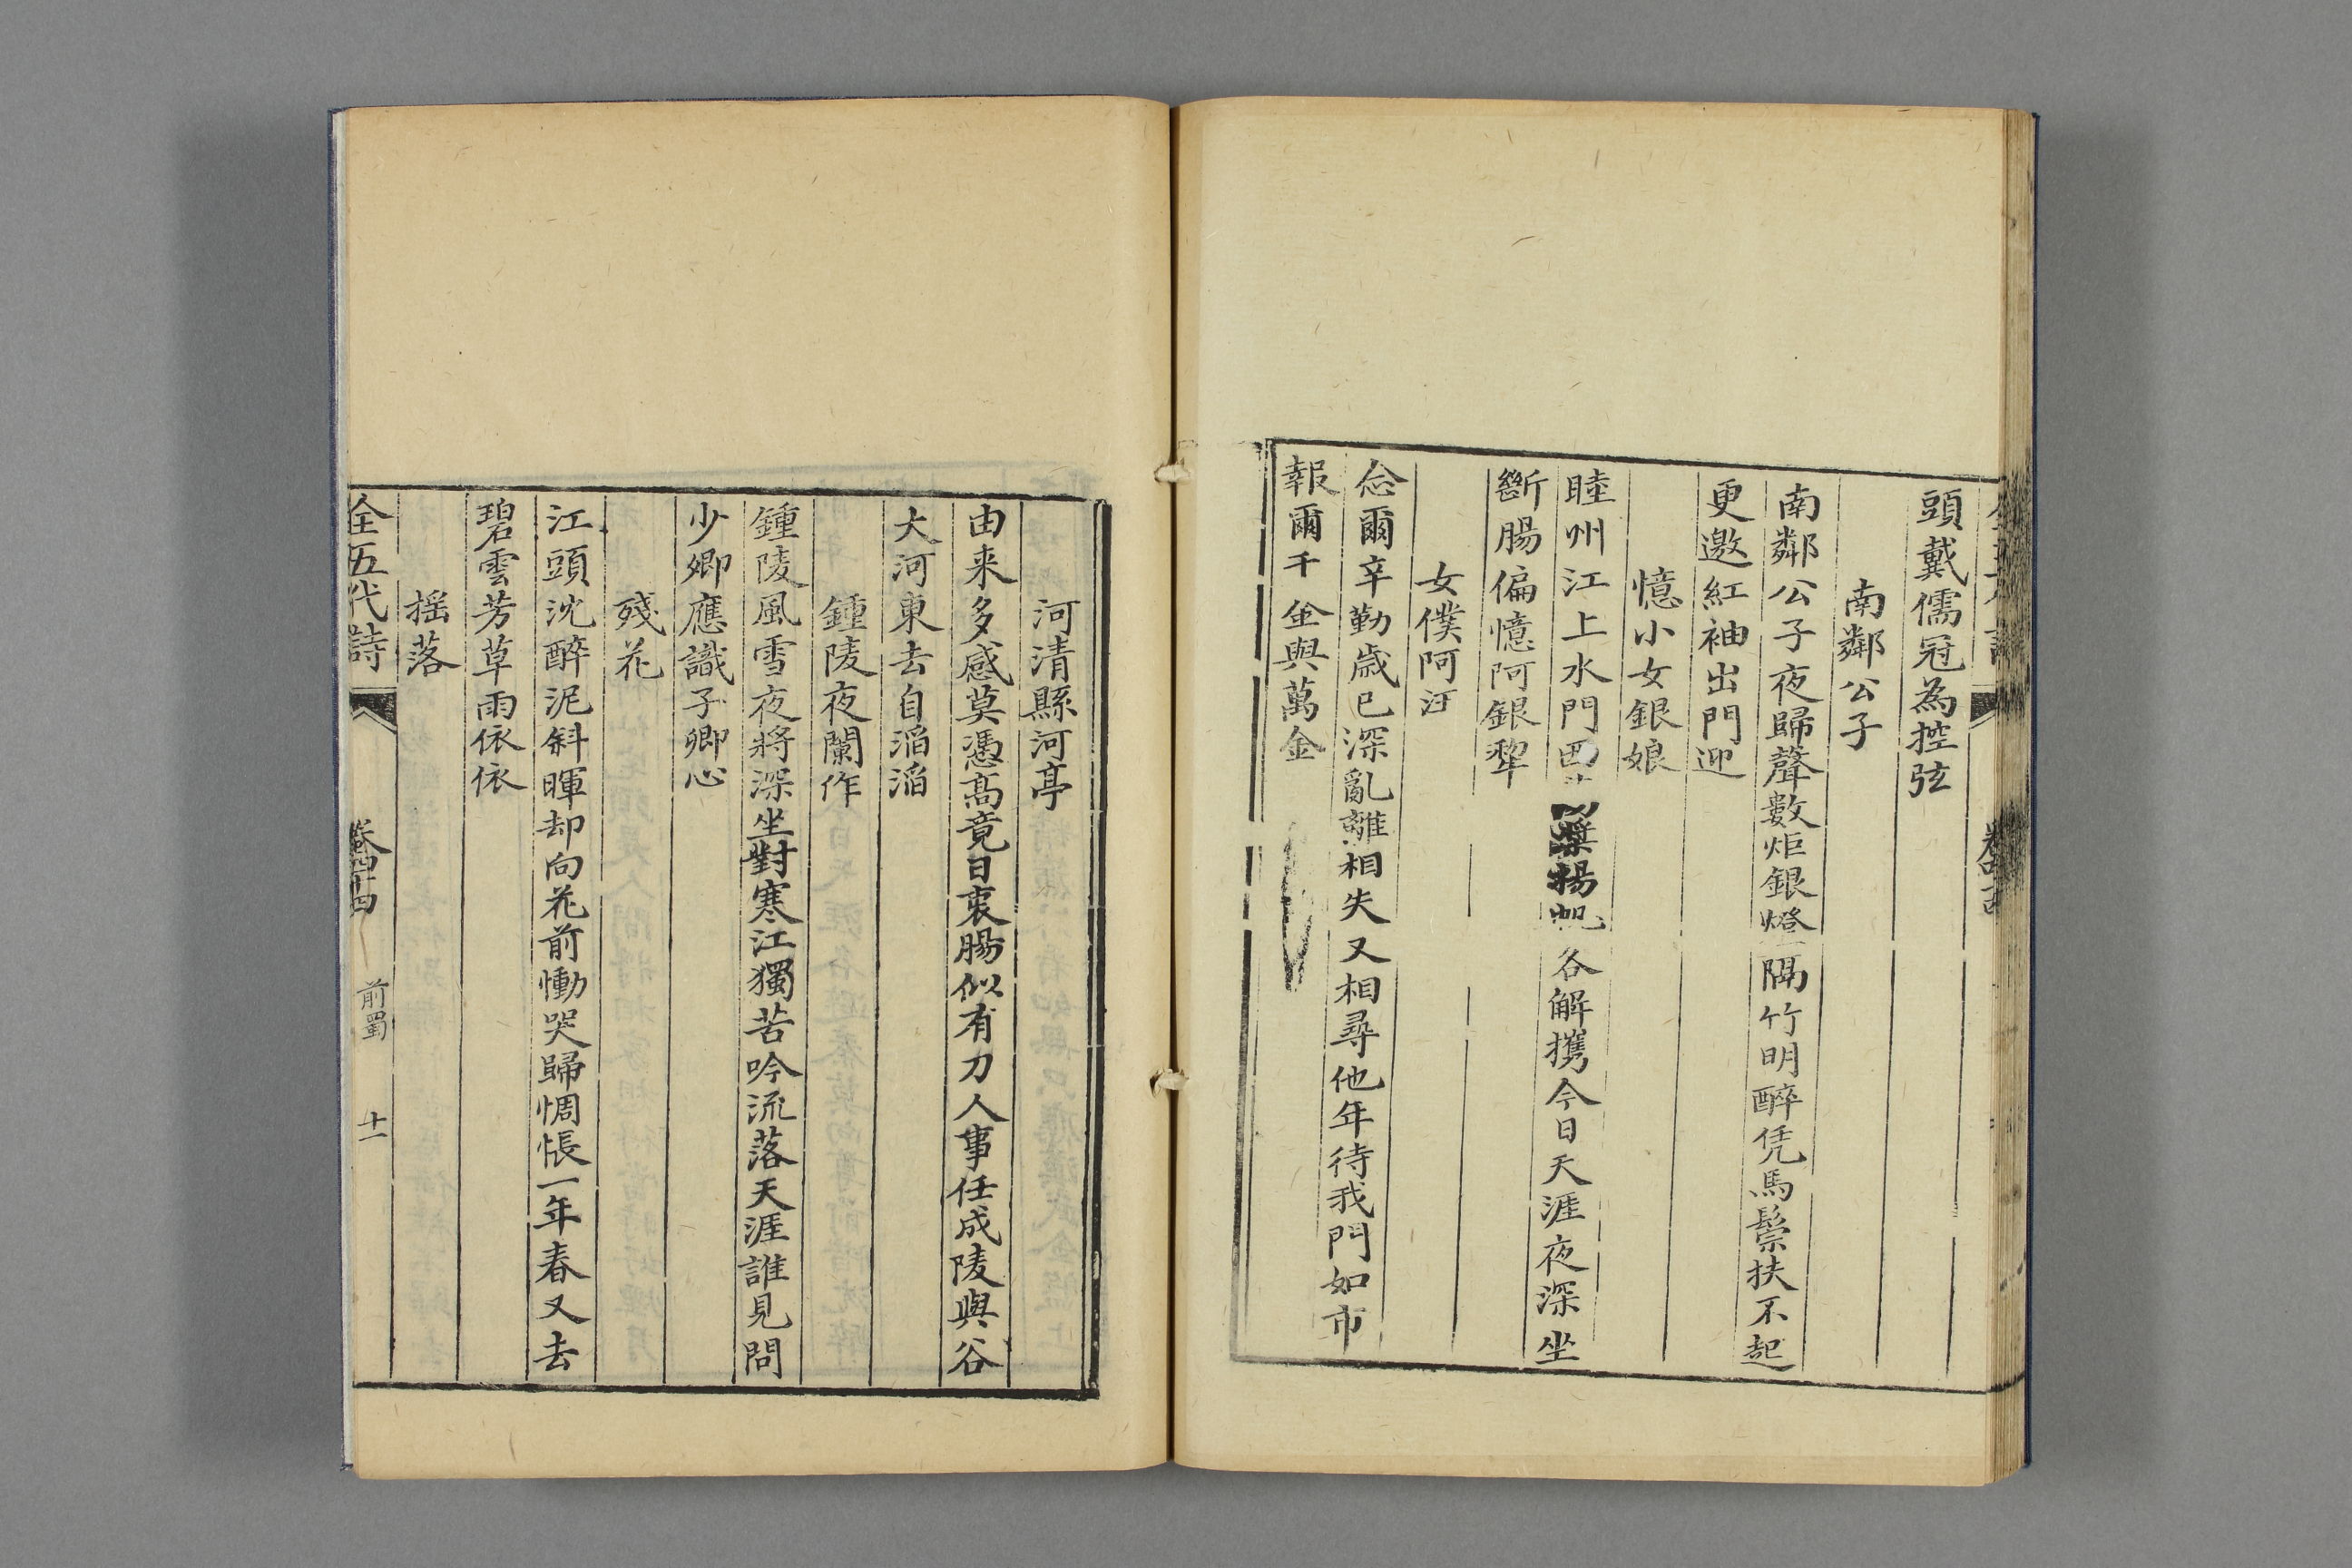 頭戴儒冠為控弦
南鄰公子
南鄰公子夜歸聲數炬銀燈隔竹明醉凭馬鬃扶不起
更邀紅袖出門迎
憶小女銀娘
睦州江上水門西槳揚帆各解攜今日天涯夜深坐
斷腸偏憶阿銀犂
女僕阿汪
念爾辛勤歲已深亂離相失又相尋他年待我門如市
報爾千金與萬金
河清縣河亭
由来多感莫憑髙竟日衷腸似有刀人事任成陵與谷
大河東去自滔滔
鍾陵夜闌作
鍾陵風雪夜將深坐對寒江獨苦吟流落天涯誰見問
少卿應識子卿心
殘花
江頭沈醉泥斜暉却向花前慟哭歸惆悵一年春又去
碧雲芳草雨依依
摇落
全五代詩
卷四十四
前蜀
十一